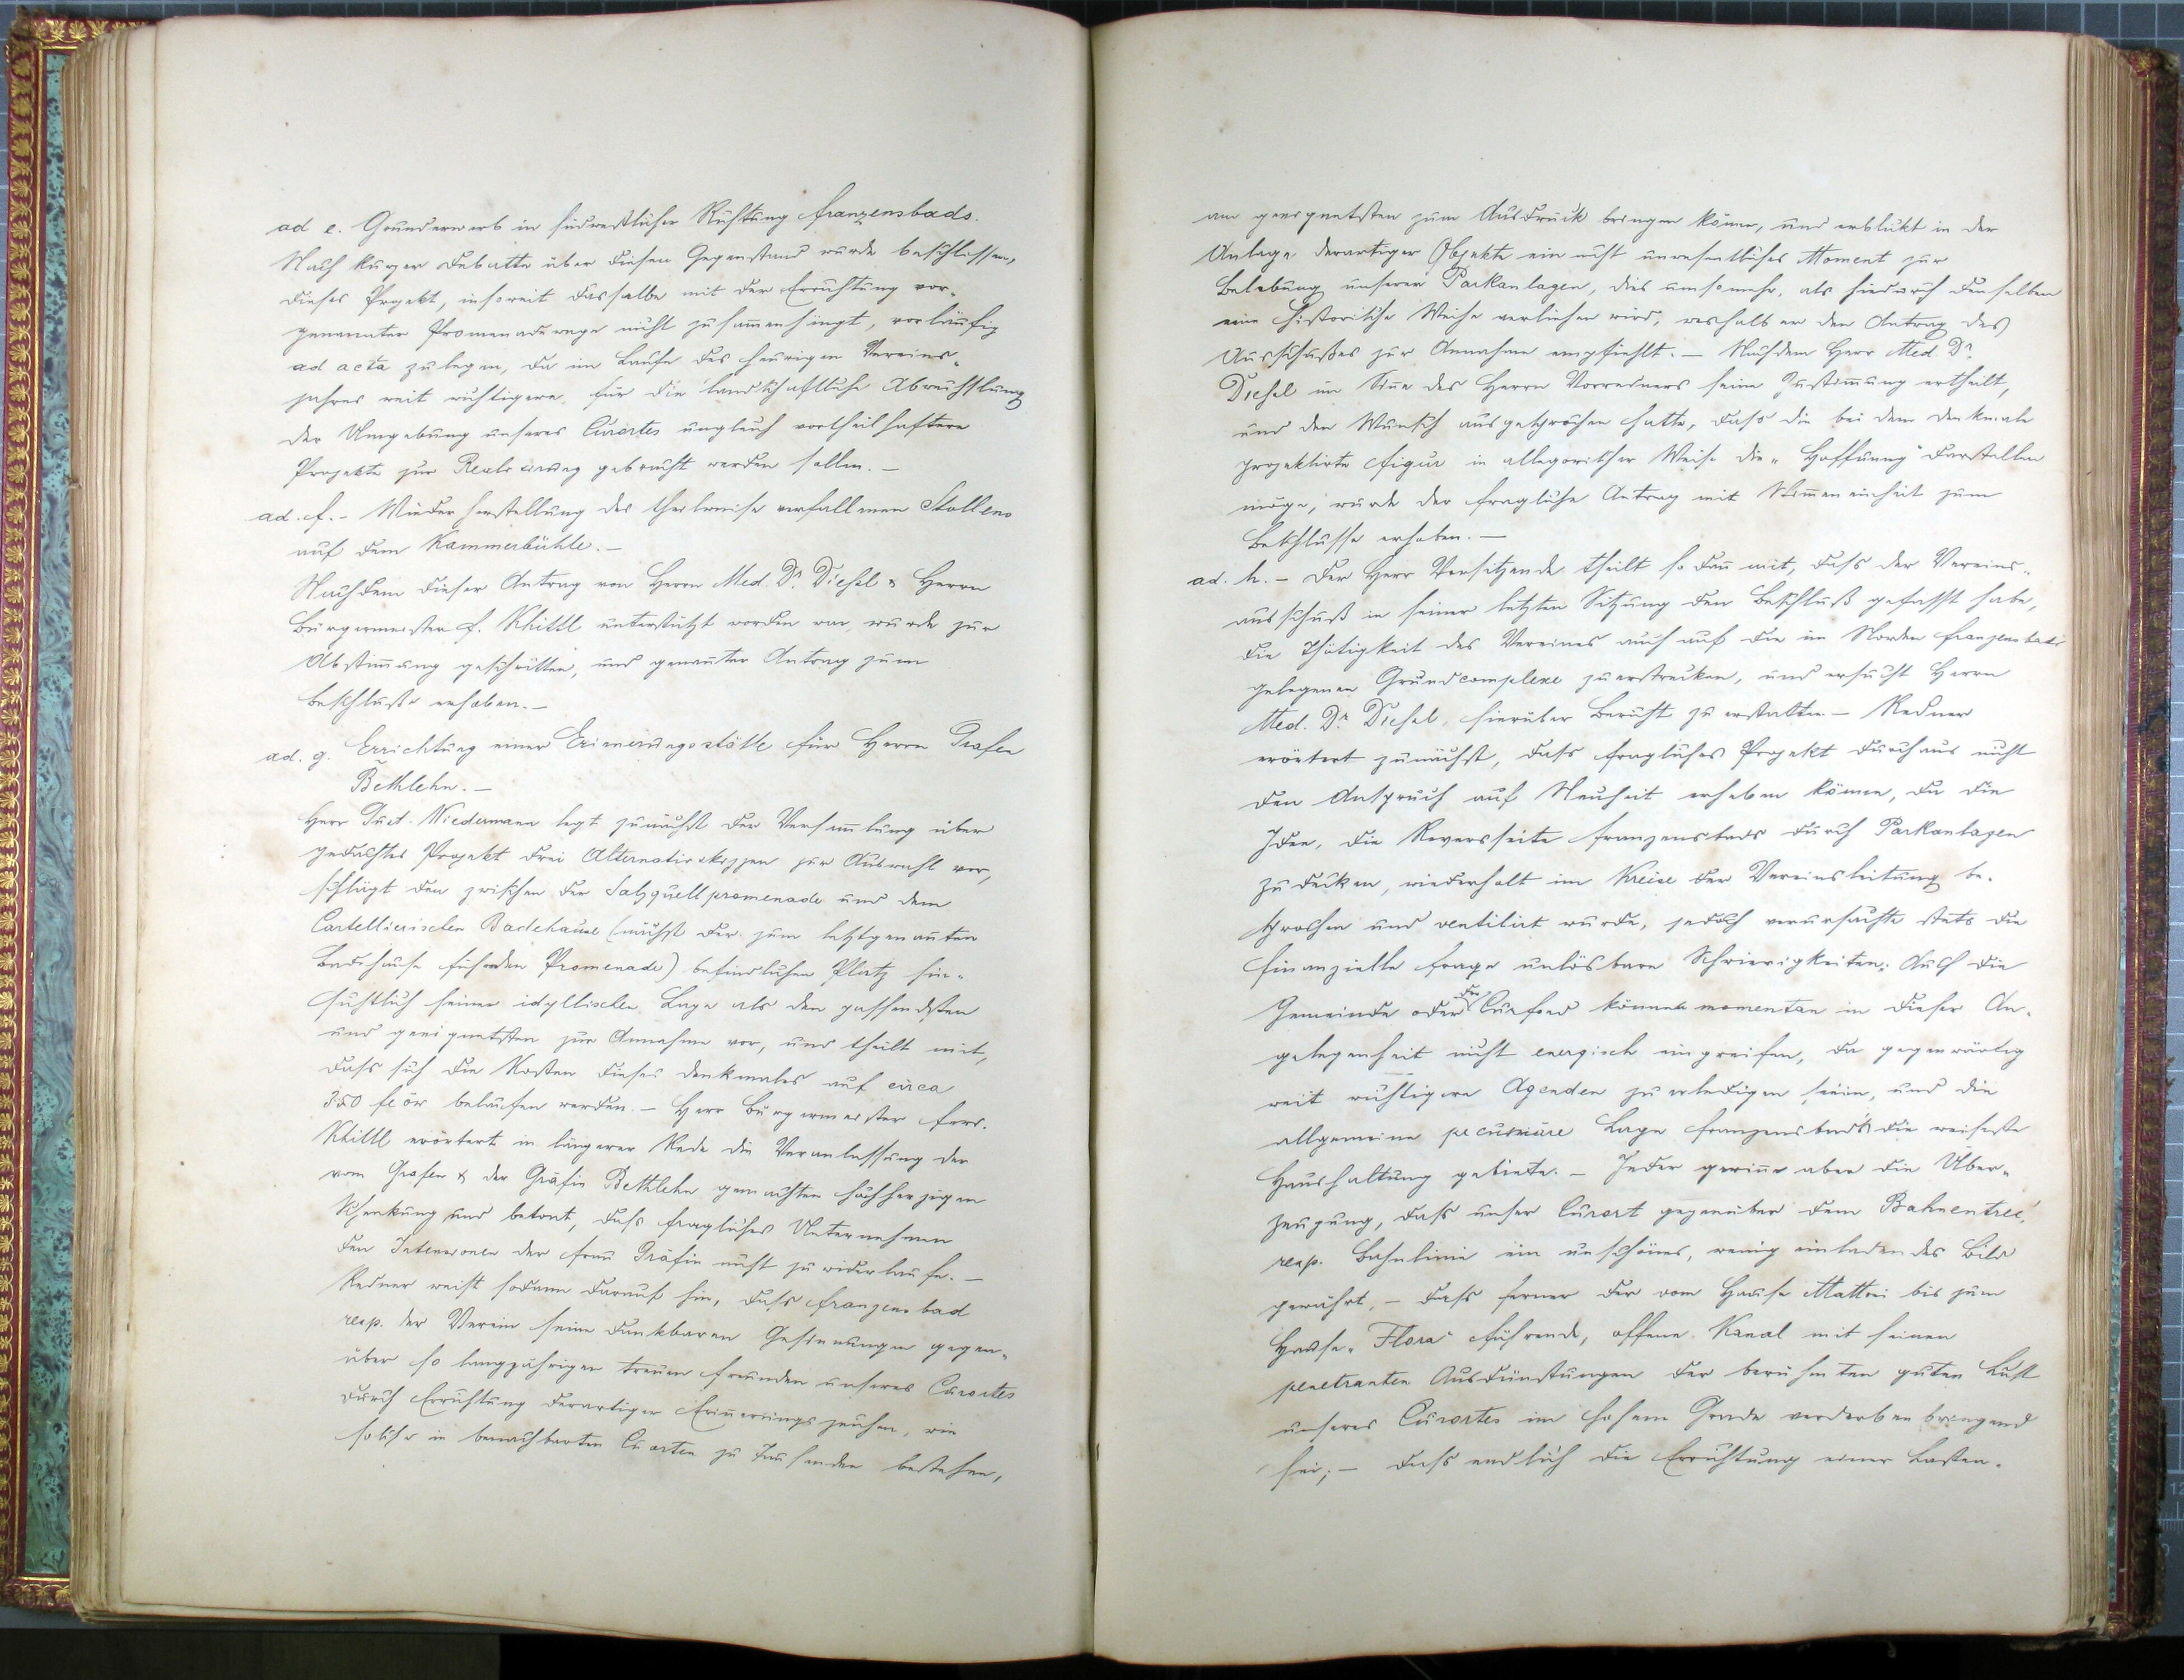 ad e. Grunderwerb in südwestlicher Richtung Franzensbads.
Nach kurzer Debatte über diesen Gegenstand wurde beschlossen,
dieses Projekt, insoweit dasselbe mit der Errichtung vor-
genannter Promenadewege nicht zusam̄enhängt, vorläufig
ad acta zu legen, da im Laufe des heurigen Vereins-
jahres weit wichtigere, für die landschaftliche Abwechslung
der Umgebung unseres Curortes ungleich vortheilhaftere
Projekte zur Realisirung gebracht werden sollen. –
ad. f. – Wiederherstellung des theilweise verfallenen Stollens
auf dem Kammerbühle. –
Nachdem dieser Antrag von Herrn Med. Dr. Diessl & Herrn
Bürgermeister F. Khittl unterstützt worden war, wurde zur
Abstim̄ung geschritten, und genan̄ter Antrag zum
Beschlusse erhoben. –
ad. g. Errichtung einer Erinnerungsstätte für Herrn Grafen
Bethlehn. –
Herr Dir. Wiedermann legt zunächst der Versam̄lung über
gedachtes Projekt drei Alternativskizzen zur Auswahl vor,
schlägt den zwischen der Salzquellpromenade und dem
Cartellierischen Badehause (nächst der zum letztgenan̄ten
Badehause führenden Promenade) befindlichen Platz hin-
sichtlich seiner idyllischen Lage als den passendsten
und geeignetsten zur Annahme vor, und theilt mit,
dass sich die Kosten dieses Denkmales auf circa
350 fl öw belaufen werden. – Herr Bürgermeister Ferd.
Khittl erörtert in längerer Rede die Veranlassung der
vom Grafen & der Gräfin Bethlehn gemachten hochherzigen
Schenkung und betont, dass fragliches Unternehmen
den Intensionen der Frau Gräfin nicht zuwiderlaufe. –
Redner weist sodann darauf hin, dass Franzensbad
resp. der Verein seine dankbaren Gesinnungen gegen-
über so langjährigen treuen Freunden unseres Curortes
durch Errichtung derartiger Erin̄erungszeichen, wie
solche in benachbarten Curorten zu Tausenden bestehen,
am geeignetsten zum Ausdruck bringen könne, und erblickt in der
Anlage derartiger Objekte ein nicht unwesentliches Moment zur
Belebung unserer Parkanlagen, dies umsomehr, als hiedurch denselben
eine historische Weihe verliehen wird, weshalb er den Antrag des
Ausschußes zur Annahme empfiehlt. – Nachdem Herr Med. Dr.
Diessl im Sin̄e des Herrn Vorredners seine Zustim̄ung ertheilt,
und den Wunsch ausgesprochen hatte, dass die bei dem Denkmale
projektirte Figur in allegorischer Weise die „Hoffnung" darstellen
möge, wurde der fragliche Antrag mit Stim̄eneinheit zum
Beschlusse erhoben. –
ad. h. – Der Herr Vorsitzende theilt sodan̄ mit, dass der Vereins-
ausschuß in seiner letzten Sitzung den Beschluß gefasst habe,
die Thätigkeit des Vereines auch auf die im Norden Franzensbads
gelegenen Grundcomplexe zu erstrecken, und ersucht Herrn
Med. Dr. Diessl, hierüber Bericht zu erstatten. – Redner
erörtert zunächst, dass fragliches Projekt durchaus nicht
den Anspruch auf Neuheit erheben könne, da die
Idee, die Reversseite Franzensbads durch Parkanlagen
zu decken, wiederholt im Kreise der Vereinsleitung be-
sprochen und ventilirt wurde, jedoch verursachte stets die
finanzielle Frage unlösbare Schwierigkeiten; Auch die
Gemeinde oder der Curfond könnte momentan in dieser An-
gelegenheit nicht energisch eingreifen, da gegenwärtig
weit wichtigere Agenden zu erledigen seien, und die
allgemeine pecuniäre Lage Franzensbads die weiseste
Haushaltung gebiete. – Jeder gewin̄e aber die Über-
zeugung, dass unser Curort gegenüber dem Bahnentreé,
resp. Bahnlinie ein unschönes, wenig einladendes Bild
gewährt, – dass ferner der vom Hause Mattoni bis zum
Hause „Flora" führende, offene Kanal mit seinen
penetranten Ausdünstungen der berühmten guten Luft
unseres Curortes im hohem Grade verderbenbringend
sei; – dass endlich die Errichtung einer Lasten-